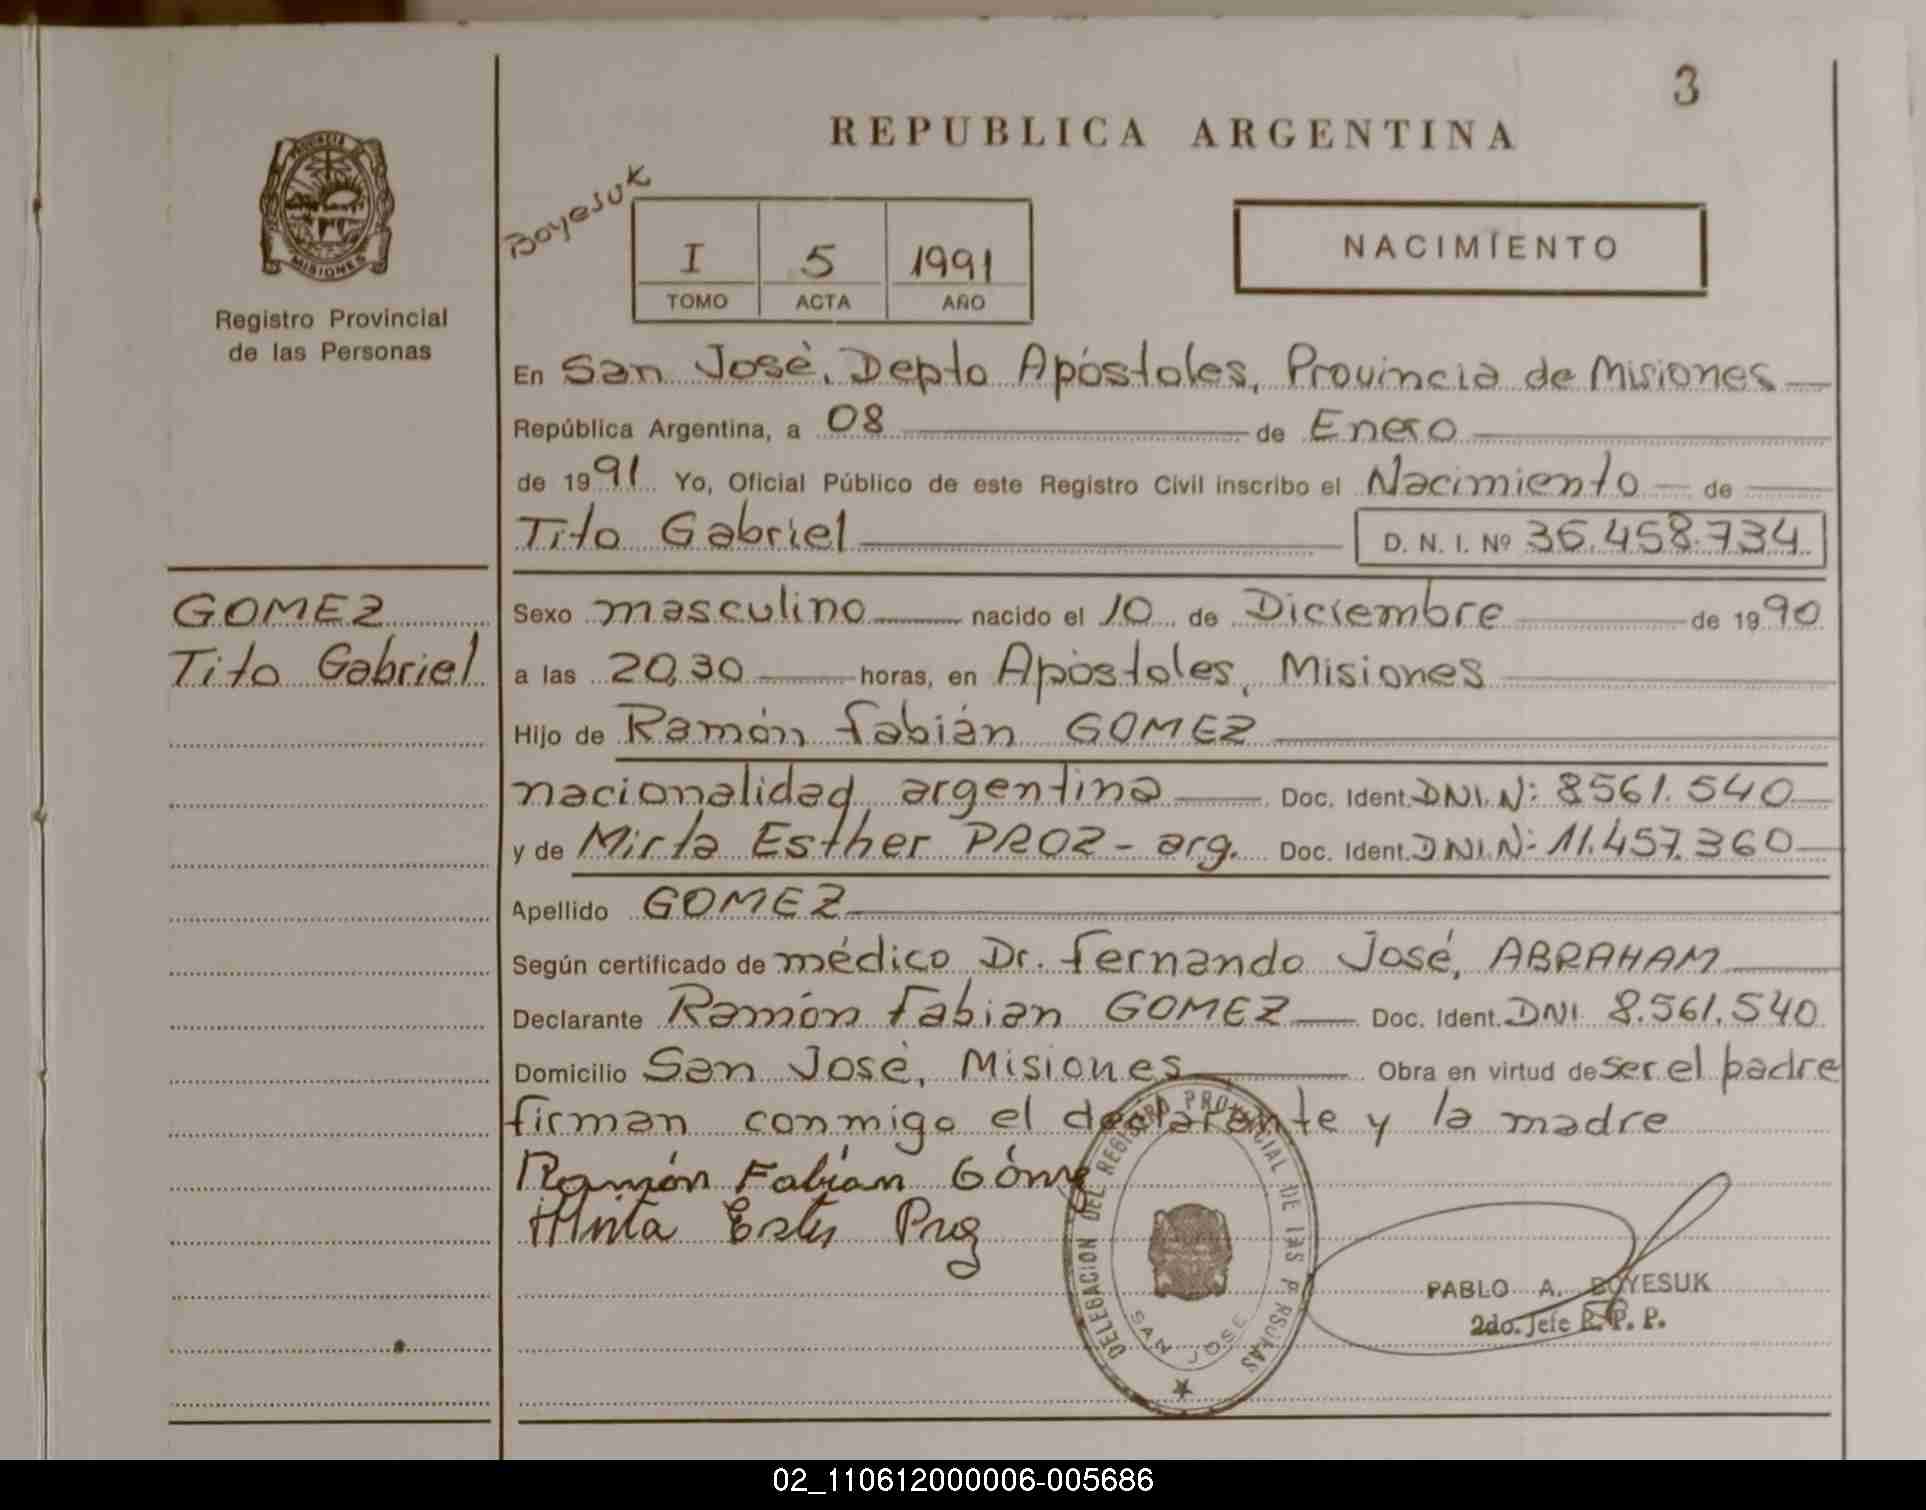 3
REPUBLICA ARGENTINA
PROVINCIA DE
MISIONES
Registro Provincial
de las Personas
Boyesuk
I 5 1991
TOMO ACTA AÑO
NACIMIENTO
En San José, Depto Apóstoles, Provincia de Misiones
República Argentina, a 08 de Enero
de 1991 Yo, Oficial Público de este Registro Civil inscribo el Nacimiento de
Tito Gabriel D. N. I. Nº 36.458.734
GOMEZ
Tito Gabriel
Sexo masculino nacido el 10 de Diciembre de 1990
a las 20,30 horas, en Apóstoles, Misiones
Hijo de Ramón Fabián GOMEZ
nacionalidad argentina Doc. Ident. DNI. N: 8561.540
y de Mirta Esther PROZ - arg. Doc. Ident. DNI. N: 11.457.360
Apellido GOMEZ
Según certificado de médico Dr. Fernando José, ABRAHAM
Declarante Ramón Fabian GOMEZ Doc. Ident. DNI 8.561.540
Domicilio San José, Misiones Obra en virtud de ser el padre
firman conmigo el declarante y la madre
Ramón Fabián Gómez
DELEGACION DEL REGISTRO PROVINCIAL DE LAS PERSONAS
SAN JOSE
PABLO A. BOYESUK
2do. Jefe R. P. P.
02_110612000006-005686